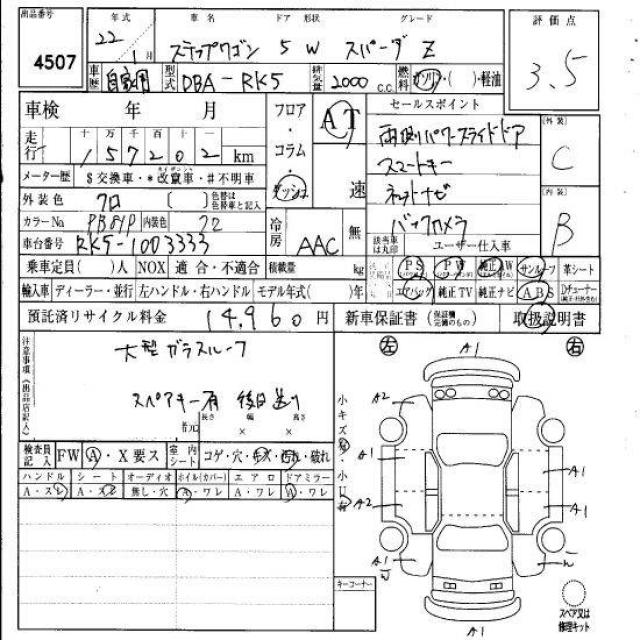 出品番号 年式 車名 ドア 形状 グレード 評価点
4507 22 1月 ステップワゴン 5W スパーダ Z 3.5
車歴 自家用 型式 DBA-RK5 排気量 2000 c.c. 燃料 ガソリン・( )・軽油
車検 年 月 フロア・コラム・ダッシュ AT 速 セールスポイント 【外装】
走行 十万千百十一 157202 km 両側パワースライドドア C
メーター歴 $交換車・*改竄車・#不明車 スマートキー
外装色 クロ ( ) 色替は色替車と記入 冷房 AAC 無 ネットナビ 【内装】
カラーNo PB81P 内装色 22 バックカメラ B
車台番号 RK5-1003333 該当車は丸印 ユーザー仕入車
乗車定員( )人 NOX 適合・不適合 積載量 kg PS PW 純正AW サンルーフ 革シート
輸入車 ディーラー・並行 左ハンドル・右ハンドル モデル年式( )年 エアバッグ 純正TV 純正ナビ ABS
預託済リサイクル料金 14,960円 新車保証書 取扱説明書
注意事項(出品店記入) 大型ガラスルーフ
スペアキー有 後日送り
長さ 幅 高さ
× ×
検査員記入 FW A・X要ス 室内シート コゲ・穴・キズ・汚れ・破れ
ハンドル シート オーディオ ホイル(カバー) エアロ ドアミラー
A・スレ A・スレ 無し・穴 A・ワレ A・ワレ A・ワレ
キーコーナー
左 A1 右
小キズ
A2
A1 A1
A2 A1
A1
A1
スペア又は
修理キット